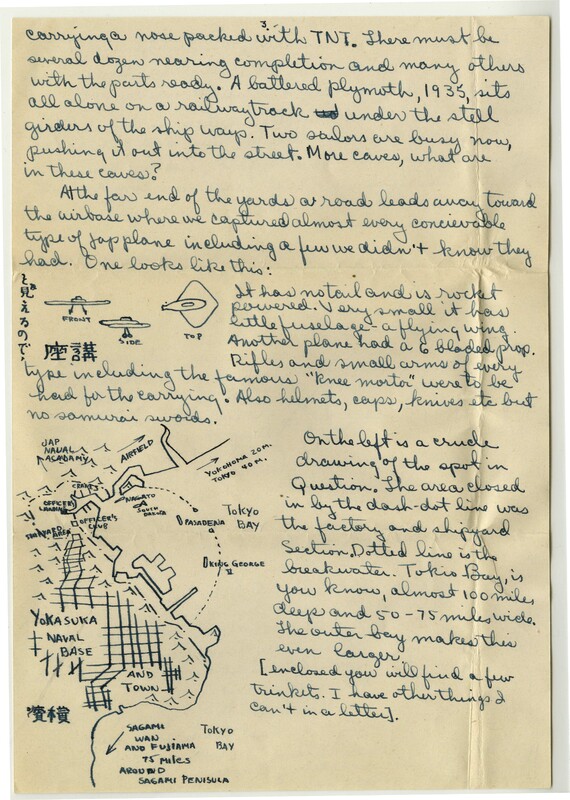 3.
carrying a nose packed with TNT. There must be
several dozen nearing completion and many others
with the parts ready. A battered plymoth, 1935, sits
all alone on a railway track under the stell
girders of the ship ways. Two sailors are busy now,
pushing it out into the street. More caves, what are
in these caves?
At the far end of the yards a road leads away toward
the airbase where we captured almost every concievable
type of Jap plane including a few we didn't know they
had. One looks like this:
と見えるので、
FRONT
SIDE
TOP
座講
It has no tail and is rocket
powered. Very small it has
little fuselage - a flying wing.
Another plane had a 6 bladed prop.
Rifles and small arms of every
type including the famous "knee mortar" were to be
had for the carrying. Also helmets, caps, knives etc but
no samurai swords.
JAP
NAVAL
ACADAMY
AIRFIELD
YOKOHOMA 20 M.
TOKYO 40 M.
CRANE
OFFICERS
LANDING
NAGATO
SOUTH
DAKOTA
OFFICER'S
CLUB
PASADENA
TOKYO
BAY
KING GEORGE
V
YOKASUKA
NAVAL
BASE
AND
TOWN
濱横
SAGAMI
WAN
AND FUJIAMA
75 MILES
AROUND
SAGAMI PENISULA
TOKYO
BAY
On the left is a crude
drawing of the spot in
Question. The area closed
in by the dash-dot line was
the factory and shipyard
Section. Dotted line is the
breakwater. Tokio Bay, is
you know, almost 100 miles
deep and 50-75 miles wide.
The outer bay makes this
even larger.
[enclosed you will find a few
trinket. I have other things I
can't in a letter].